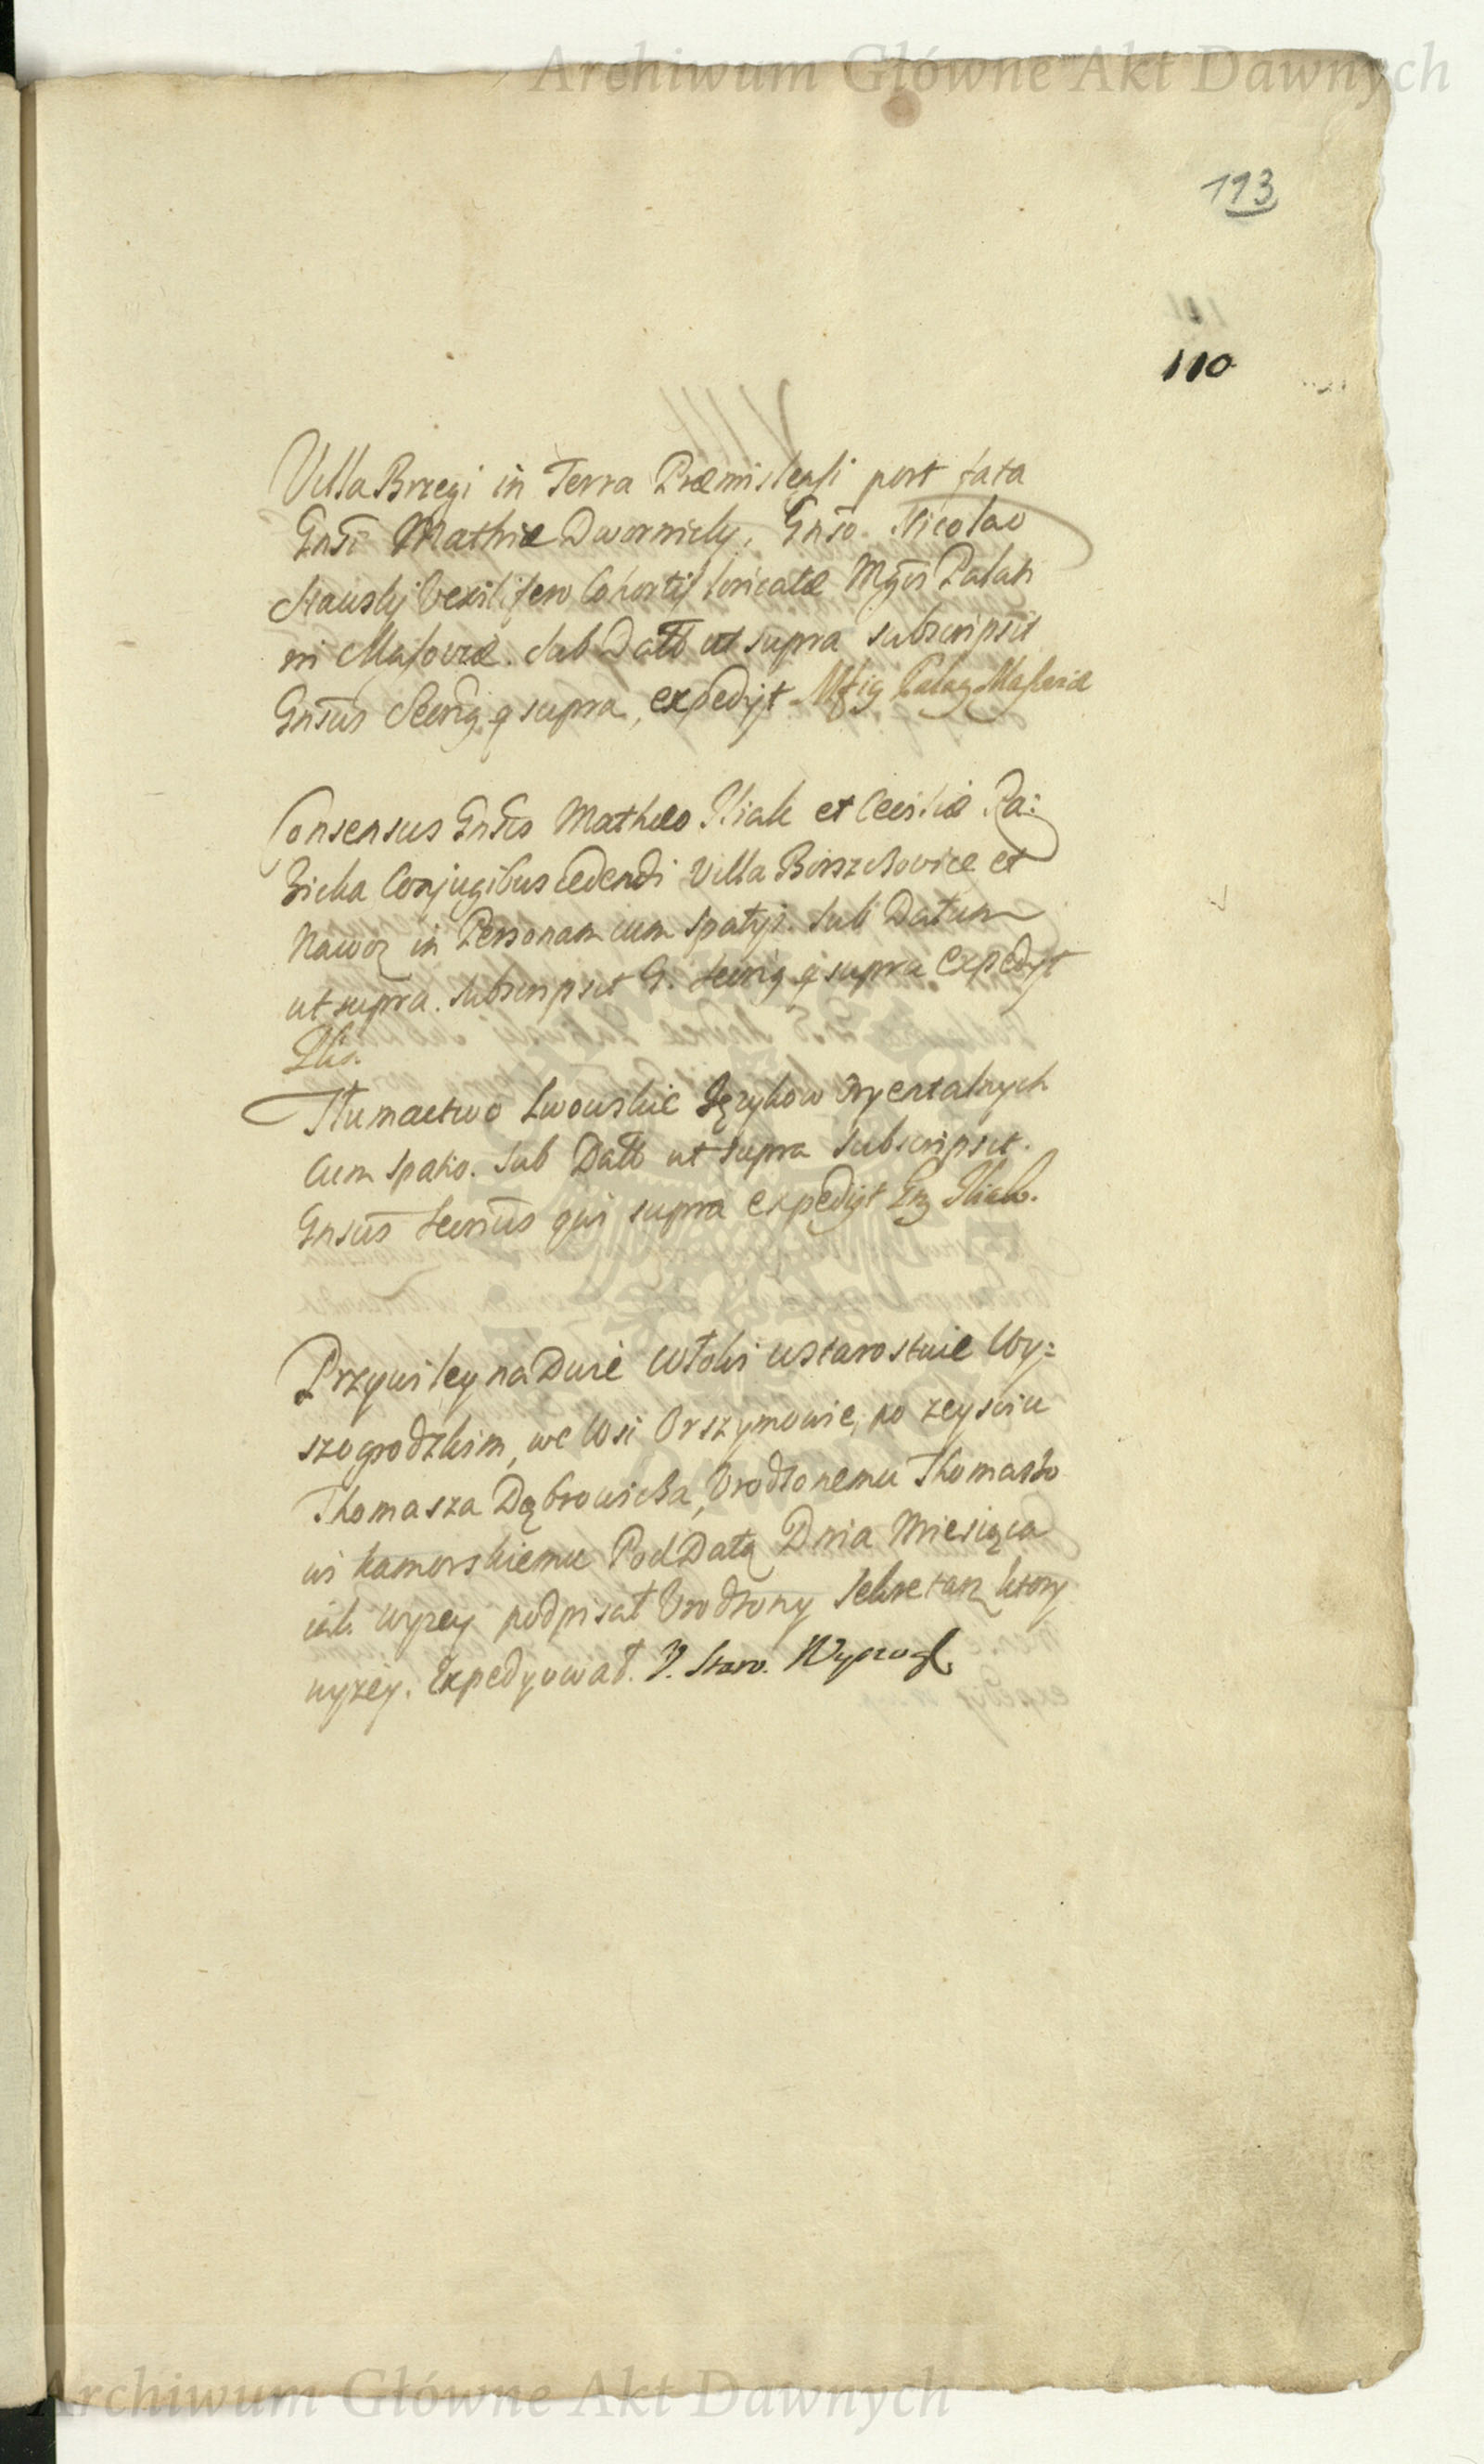 Archiwum Główne Akt Dawnych
113
110
Villa Brzegi in Terra Præmisleńsi post fata
Gnsi Mathiæ Dwornicky, Gnso Nicolao
Vexilifero Cohortis loricatæ Mgci Palati
ni Masoviæ. Sub Datto ut supra subscripsit
Gnsus Secrig q supra, expedyt Palag Masoviæ
Consensus Gnsis Matheo Iliak et Cecilia Ra:
Conjugibus cedendi Villa Borszchovice et
Nawoz in Personam cum spatys. Sub Datum
ut supra. Subscripsit G. Secrig q supra expedyt
Tłumactwo Lwowskie Językow Oryentalnych
Cum spatio. Sub Datto ut supra Subscripsit.
Gnsus Secrius qui supra expedyt Iliak.
Przywiley na Dwie Włoki w Starostwie Wy=
szogrodzkim, we Wsi Orszymowie, po zeysciu
Thomasza Dąbrowicka, Vrodzonemu Thomaszo
wi Komorskiemu Pod Datą Dnia Miesiąca
iak wyzey podpisał Vrodzony Sekretarz ktory
wyzey. Expedyował. J. Staro. Wyszog.
Archiwum Główne Akt Dawnych